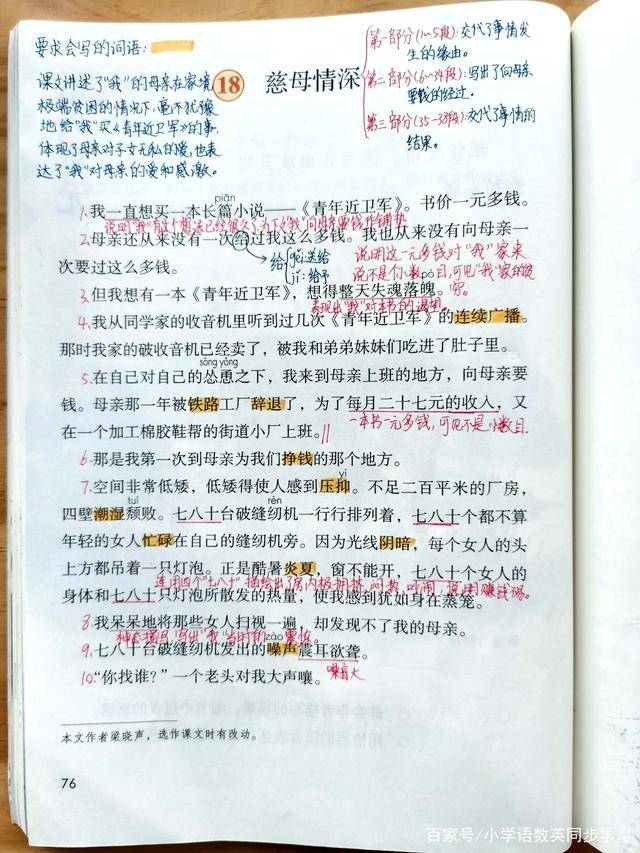 要求会写的词语：
课文讲述了“我”的母亲在家境
极端贫困的情况下，毫不犹豫
地给“我”买《青年近卫军》的事，
体现了母亲对子女无私的爱，也表
达了“我”对母亲的爱和感激。
18 慈母情深
第一部分(1~5段)：交代了事情发
生的缘由。
第二部分(6~34段)：写出了向母亲
要钱的经过。
第三部分(35~38段)：交代了事情的
结果。
piān
1.我一直想买一本长篇小说——《青年近卫军》。书价一元多钱。
说明“我”有这个想法已经很久了，为下文“我”向母亲要钱作铺垫
2.母亲还从来没有一次给过我这么多钱。我也从来没有向母亲一
次要过这么多钱。
给 gěi:送给
jǐ:给予
说明这一元多钱对“我”家来
说不是个小数目，可见“我”家的贫
穷。
pò
3.但我想有一本《青年近卫军》，想得整天失魂落魄。
表现出“我”对本书的渴望。
4.我从同学家的收音机里听到过几次《青年近卫军》的连续广播。
那时我家的破收音机已经卖了，被我和弟弟妹妹们吃进了肚子里。
sǒng yǒng
5.在自己对自己的怂恿之下，我来到母亲上班的地方，向母亲要
钱。母亲那一年被铁路工厂辞退了，为了每月二十七元的收入，又
在一个加工棉胶鞋帮的街道小厂上班。
一本书一元多钱，可见不是小数目.
6.那是我第一次到母亲为我们挣钱的那个地方。
yì
7.空间非常低矮，低矮得使人感到压抑。不足二百平米的厂房，
tuí rèn
四壁潮湿颓败。七八十台破缝纫机一行行排列着，七八十个都不算
年轻的女人忙碌在自己的缝纫机旁。因为光线阴暗，每个女人的头
上方都吊着一只灯泡。正是酷暑炎夏，窗不能开，七八十个女人的
连用四个“七八十”描绘出了房内极拥挤、闷热、吵闹，说明赚钱
身体和七八十只灯泡所散发的热量，使我感到犹如身在蒸笼。
8.我呆呆地将那些女人扫视一遍，却发现不了我的母亲。
神态描写，写出“我”当时的震惊。
zào
9.七八十台破缝纫机发出的噪声震耳欲聋。
噪音大
10.“你找谁？”一个老头对我大声嚷。
本文作者梁晓声，选作课文时有改动。
76
百家号/小学语数英同步学习